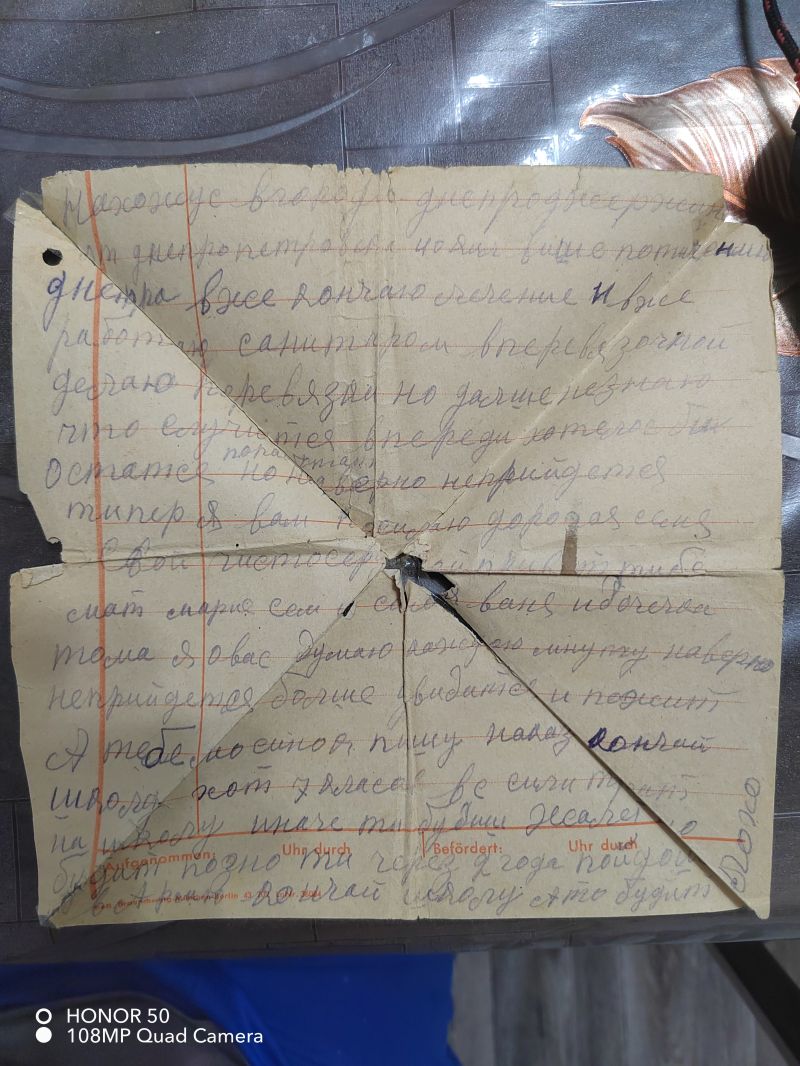 Нахожус вгороди днепроджержин
от днепропетровск ниже више потечению
днепра вже кончаю лечение и вже
работаю санитаром вперевязочной
делаю перевязки но дальше незнаю
что случится впереди хотелос бы
остатся но наверно неприйдется
типер я вам посилаю дорогая семя
Свой чистосер привет тибе
мат мария син ваня идочечка
тома я овас думаю каждую минуту наверно
неприйдется болше увидится и пожит
А тебе мой синок пишу наказ кончай
школу хот 7 класов все сили
на школу иначе ти будиш Жалет но
будит позно ти через 2 года пойдош
в Армию кончай школу Ато будит
плохо
Aufgenommen: Uhr durch Befördert: Uhr durch